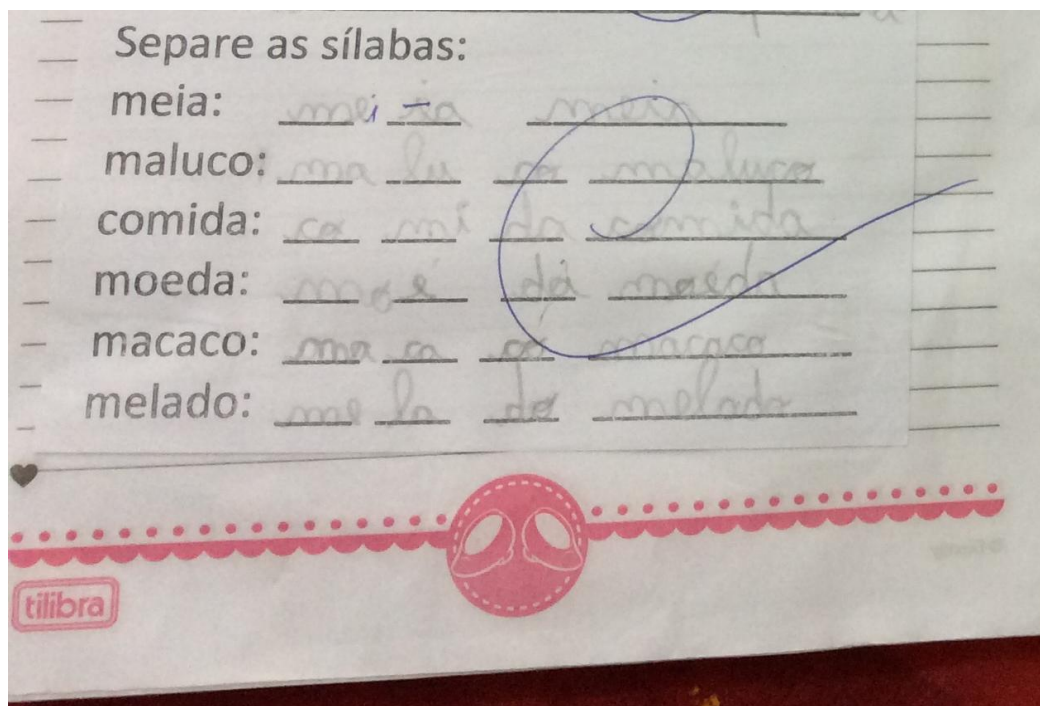 Separe as sílabas:
meia: mei - a meia
maluco: ma lu co maluco
comida: co mi da comida
moeda: mo e da moeda
macaco: ma ca co macaco
melado: me la do melado
tilibra